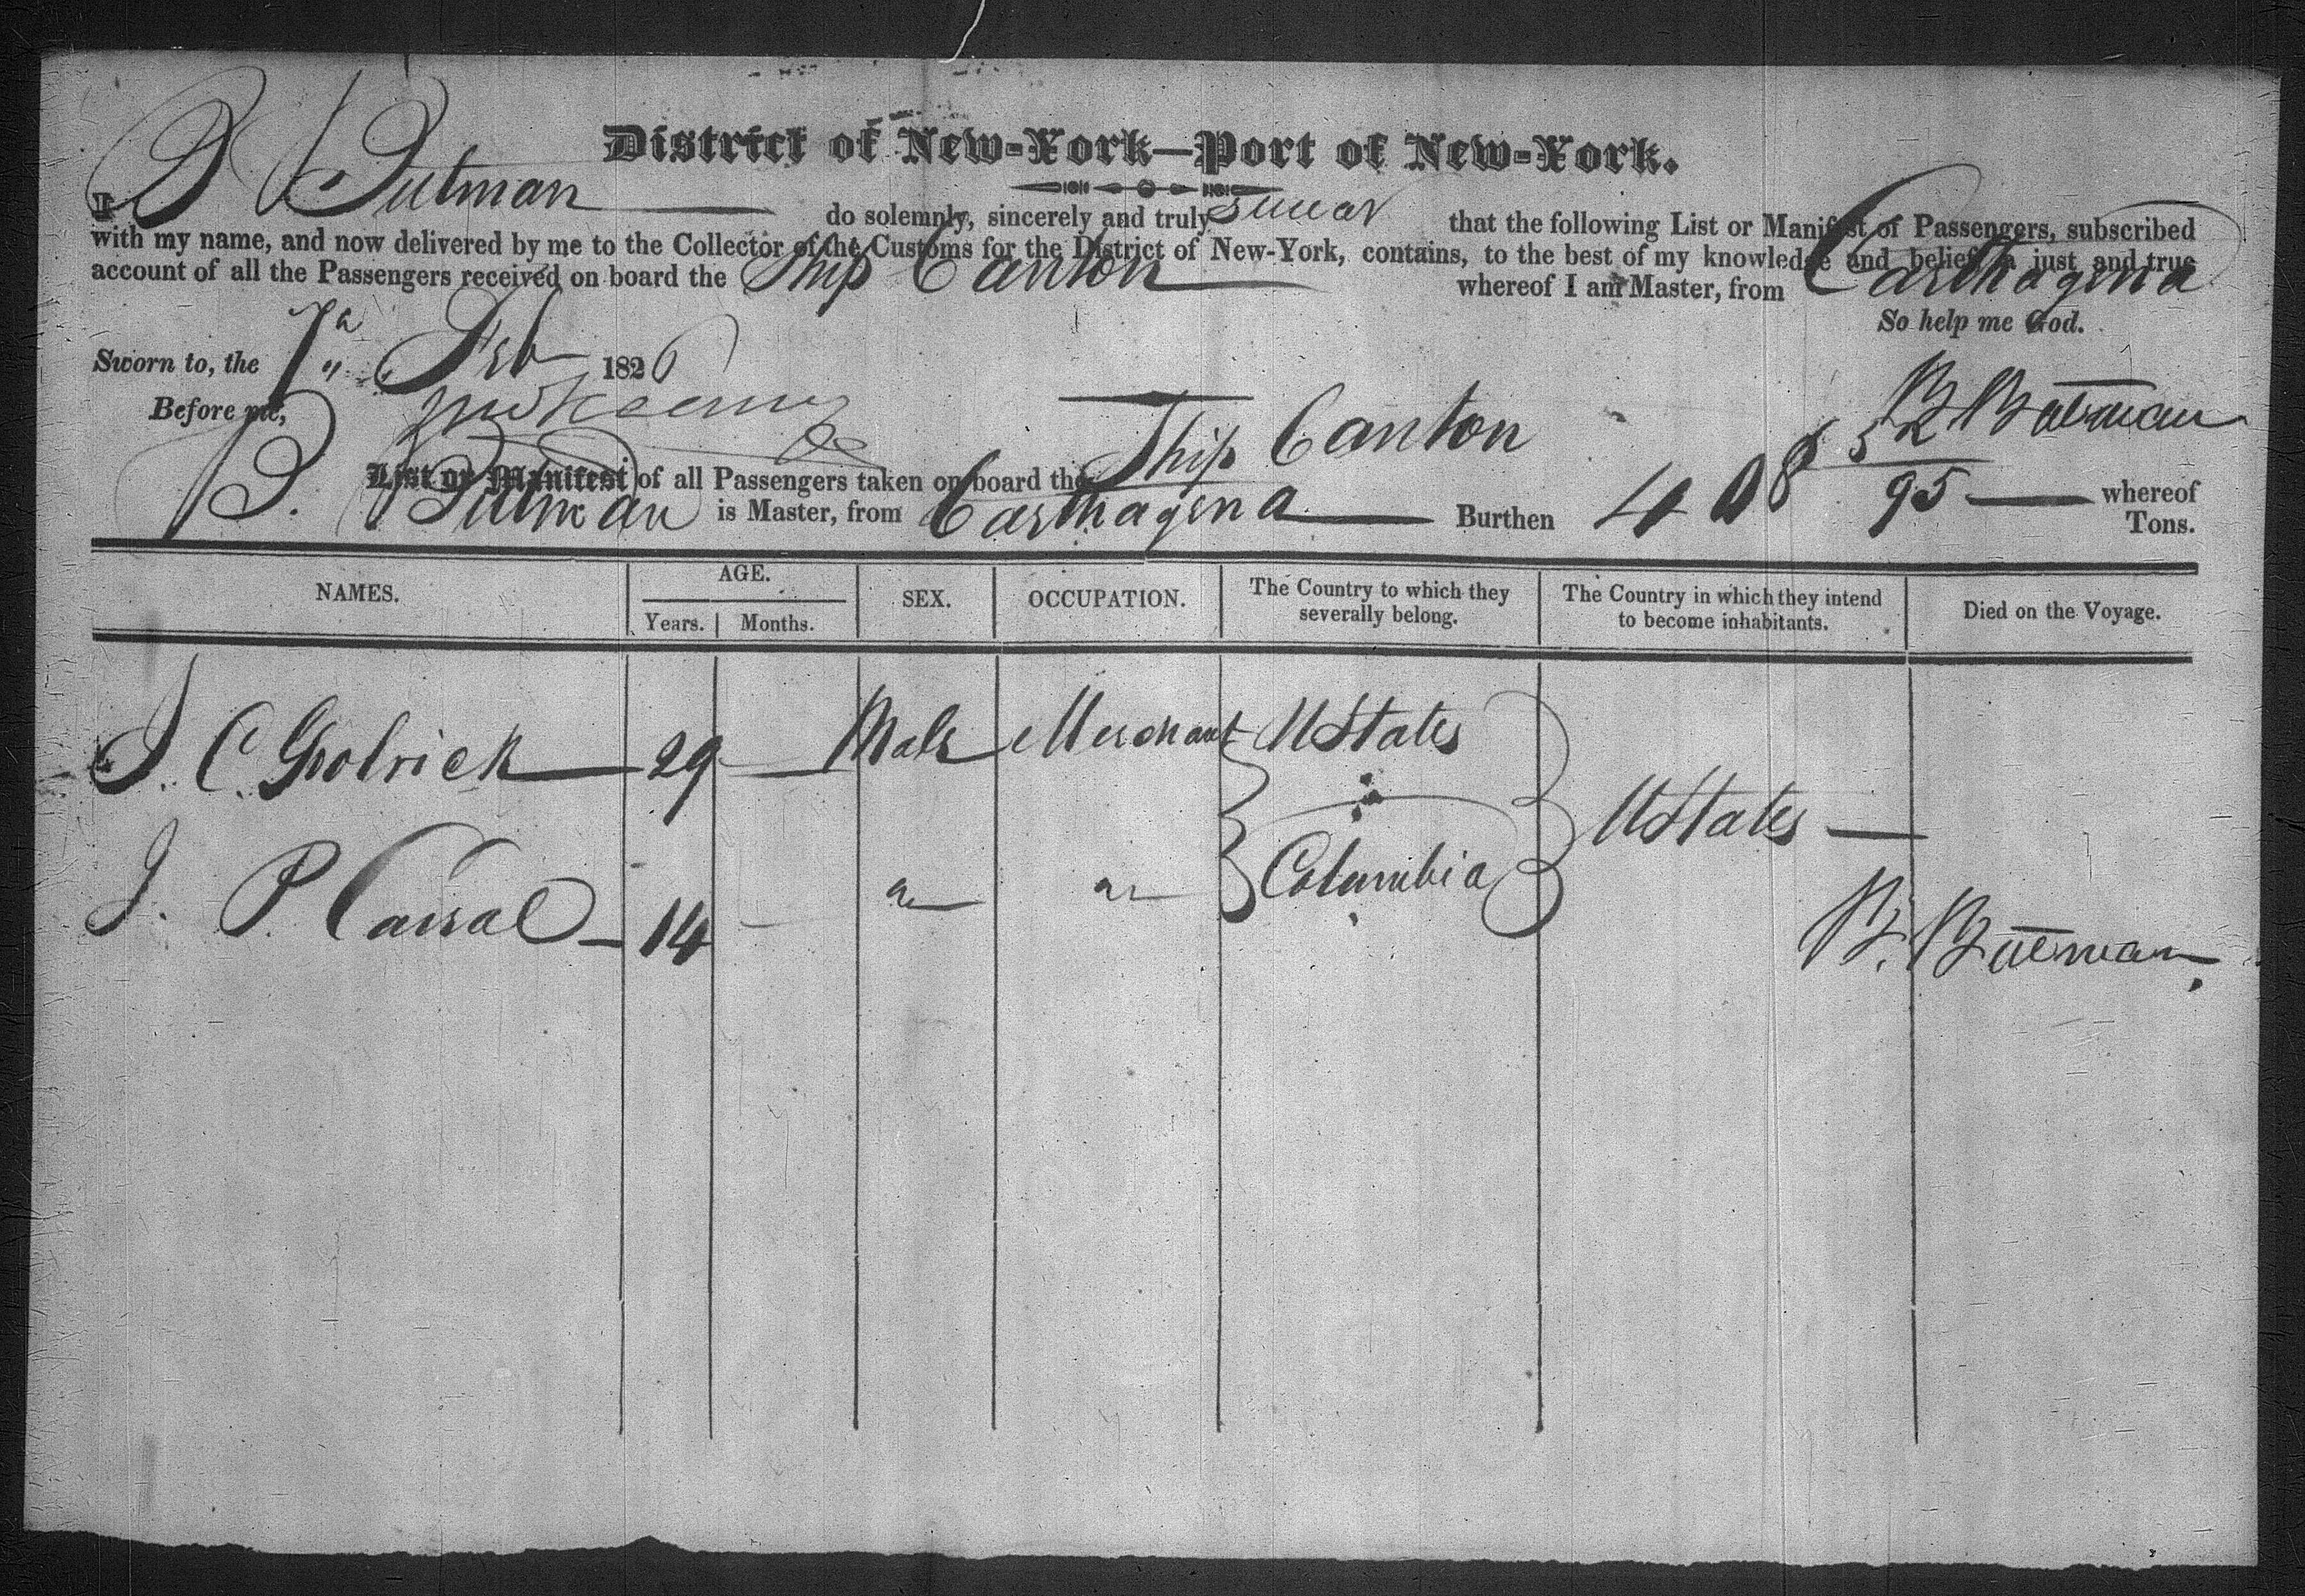 District of New-York—Port of New-York.
I B Putman do solemnly, sincerely and truly swear that the following List or Manifest of Passengers, subscribed
with my name, and now delivered by me to the Collector of the Customs for the District of New-York, contains, to the best of my knowledge and belief, a just and true
account of all the Passengers received on board the Ship Canton whereof I am Master, from Carthagena
So help me God.
Sworn to, the 7 Feb 1826
Before me,
List or Manifest of all Passengers taken on board the Ship Canton 52/95 whereof
B. Putman is Master, from Carthagena Burthen 408 Tons.
NAMES. AGE. SEX. OCCUPATION. The Country to which they severally belong. The Country in which they intend to become inhabitants. Died on the Voyage.
Years. Months.
J. C. Golrick 29 Male Merchant UStates
UStates
J. P. 14 Columbia